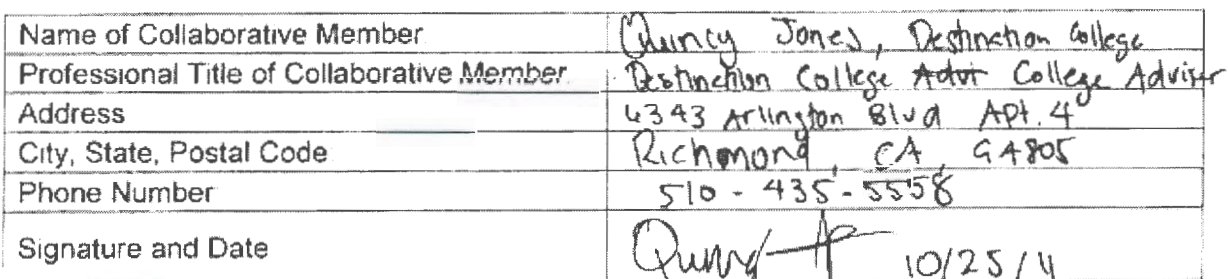 Name of Collaborative Member Quincy Jones, Destination College
Professional Title of Collaborative Member Destination College Advi College Adviser
Address 4343 Arlington Blvd Apt. 4
City, State, Postal Code Richmond, CA, 94805
Phone Number 510-435-5558
Signature and Date 10/25/11